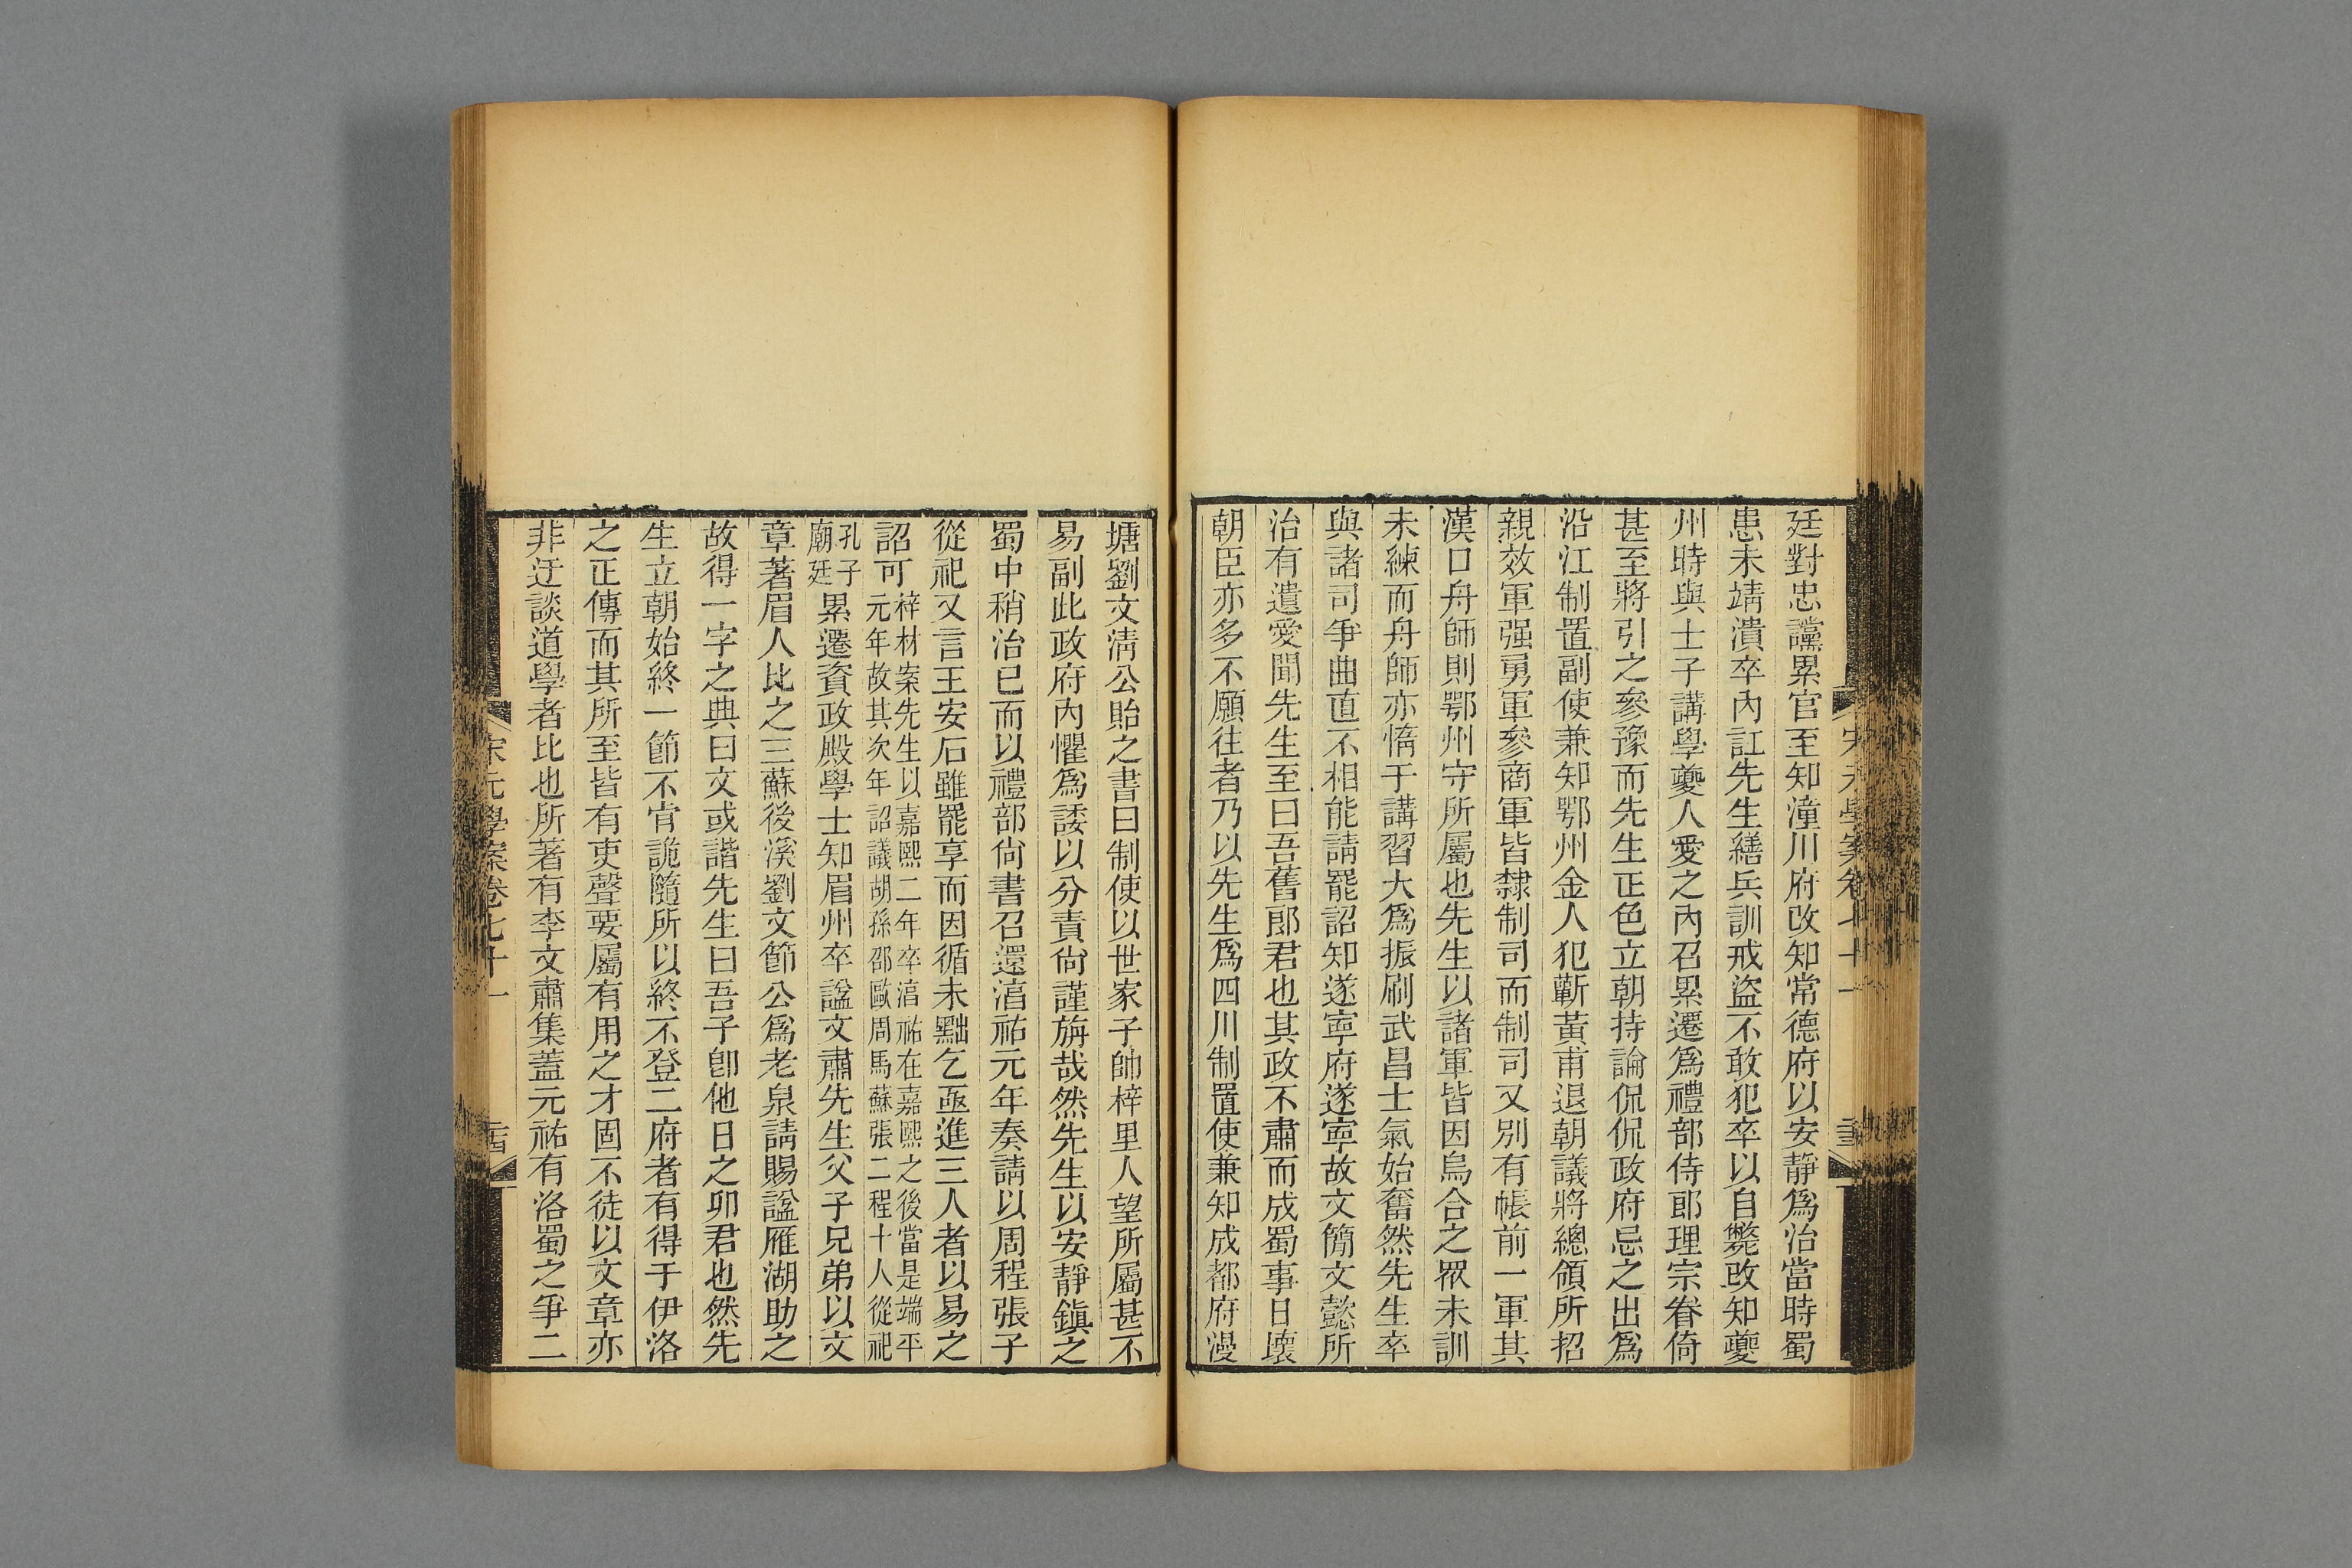 廷對忠讜累官至知潼川府改知常德府以安靜爲治當時蜀
患未靖潰卒內訌先生繕兵訓戒盜不敢犯卒以自斃改知夔
州時與士子講學夔人愛之內召累遷爲禮部侍郎理宗眷倚
甚至將引之參豫而先生正色立朝持論侃侃政府忌之出爲
沿江制置副使兼知鄂州金人犯蘄黃甫退朝議將總領所招
親效軍强勇軍參商軍皆隸制司而制司又別有帳前一軍其
漢口舟師則鄂州守所屬也先生以諸軍皆因烏合之眾未訓
未練而舟師亦惰于講習大爲振刷武昌士氣始奮然先生卒
與諸司爭曲直不相能請罷詔知遂寧府遂寧故文簡文懿所
治有遺愛聞先生至曰吾舊郎君也其政不肅而成蜀事日壞
朝臣亦多不願往者乃以先生爲四川制置使兼知成都府漫
塘劉文淸公貽之書曰制使以世家子帥梓里人望所屬甚不
易副此政府內懼爲諉以分責尙謹旃哉然先生以安靜鎭之
蜀中稍治已而以禮部尙書召還淳祐元年奏請以周程張子
從祀又言王安石雖罷享而因循未黜乞亟進三人者以易之
詔可梓材案先生以嘉熙二年卒淳祐在嘉熙之後當是端平
元年故其次年詔議胡孫邵歐周馬蘇張二程十人從祀
孔子廟廷累遷資政殿學士知眉州卒諡文肅先生父子兄弟以文
章著眉人比之三蘇後溪劉文節公爲老泉請賜諡雁湖助之
故得一字之典曰文或諧先生曰吾子卽他日之卯君也然先
生立朝始終一節不肯詭隨所以終不登二府者有得于伊洛
之正傳而其所至皆有吏聲要屬有用之才固不徒以文章亦
非迂談道學者比也所著有李文肅集蓋元祐有洛蜀之爭二
宋元學案卷七十一